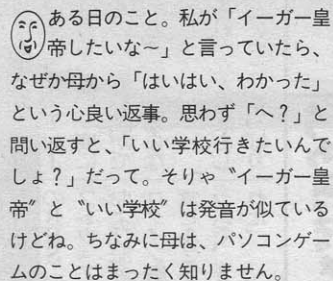 ある日のこと。私が「イーガー皇
帝したいな～」と言っていたら、
なぜか母から「はいはい、わかった」
という心良い返事。思わず「へ？」と
問い返すと、「いい学校行きたいんで
しょ？」だって。そりゃ〝イーガー皇
帝〞と〝いい学校〞は発音が似ている
けどね。ちなみに母は、パソコンゲー
ムのことはまったく知りません。